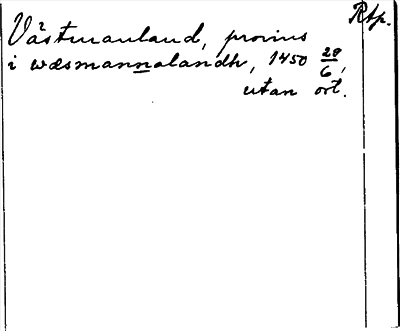 Rtp.
Västmanland, provins
i wæsmannalandh, 1450 28/6,
utan ort.